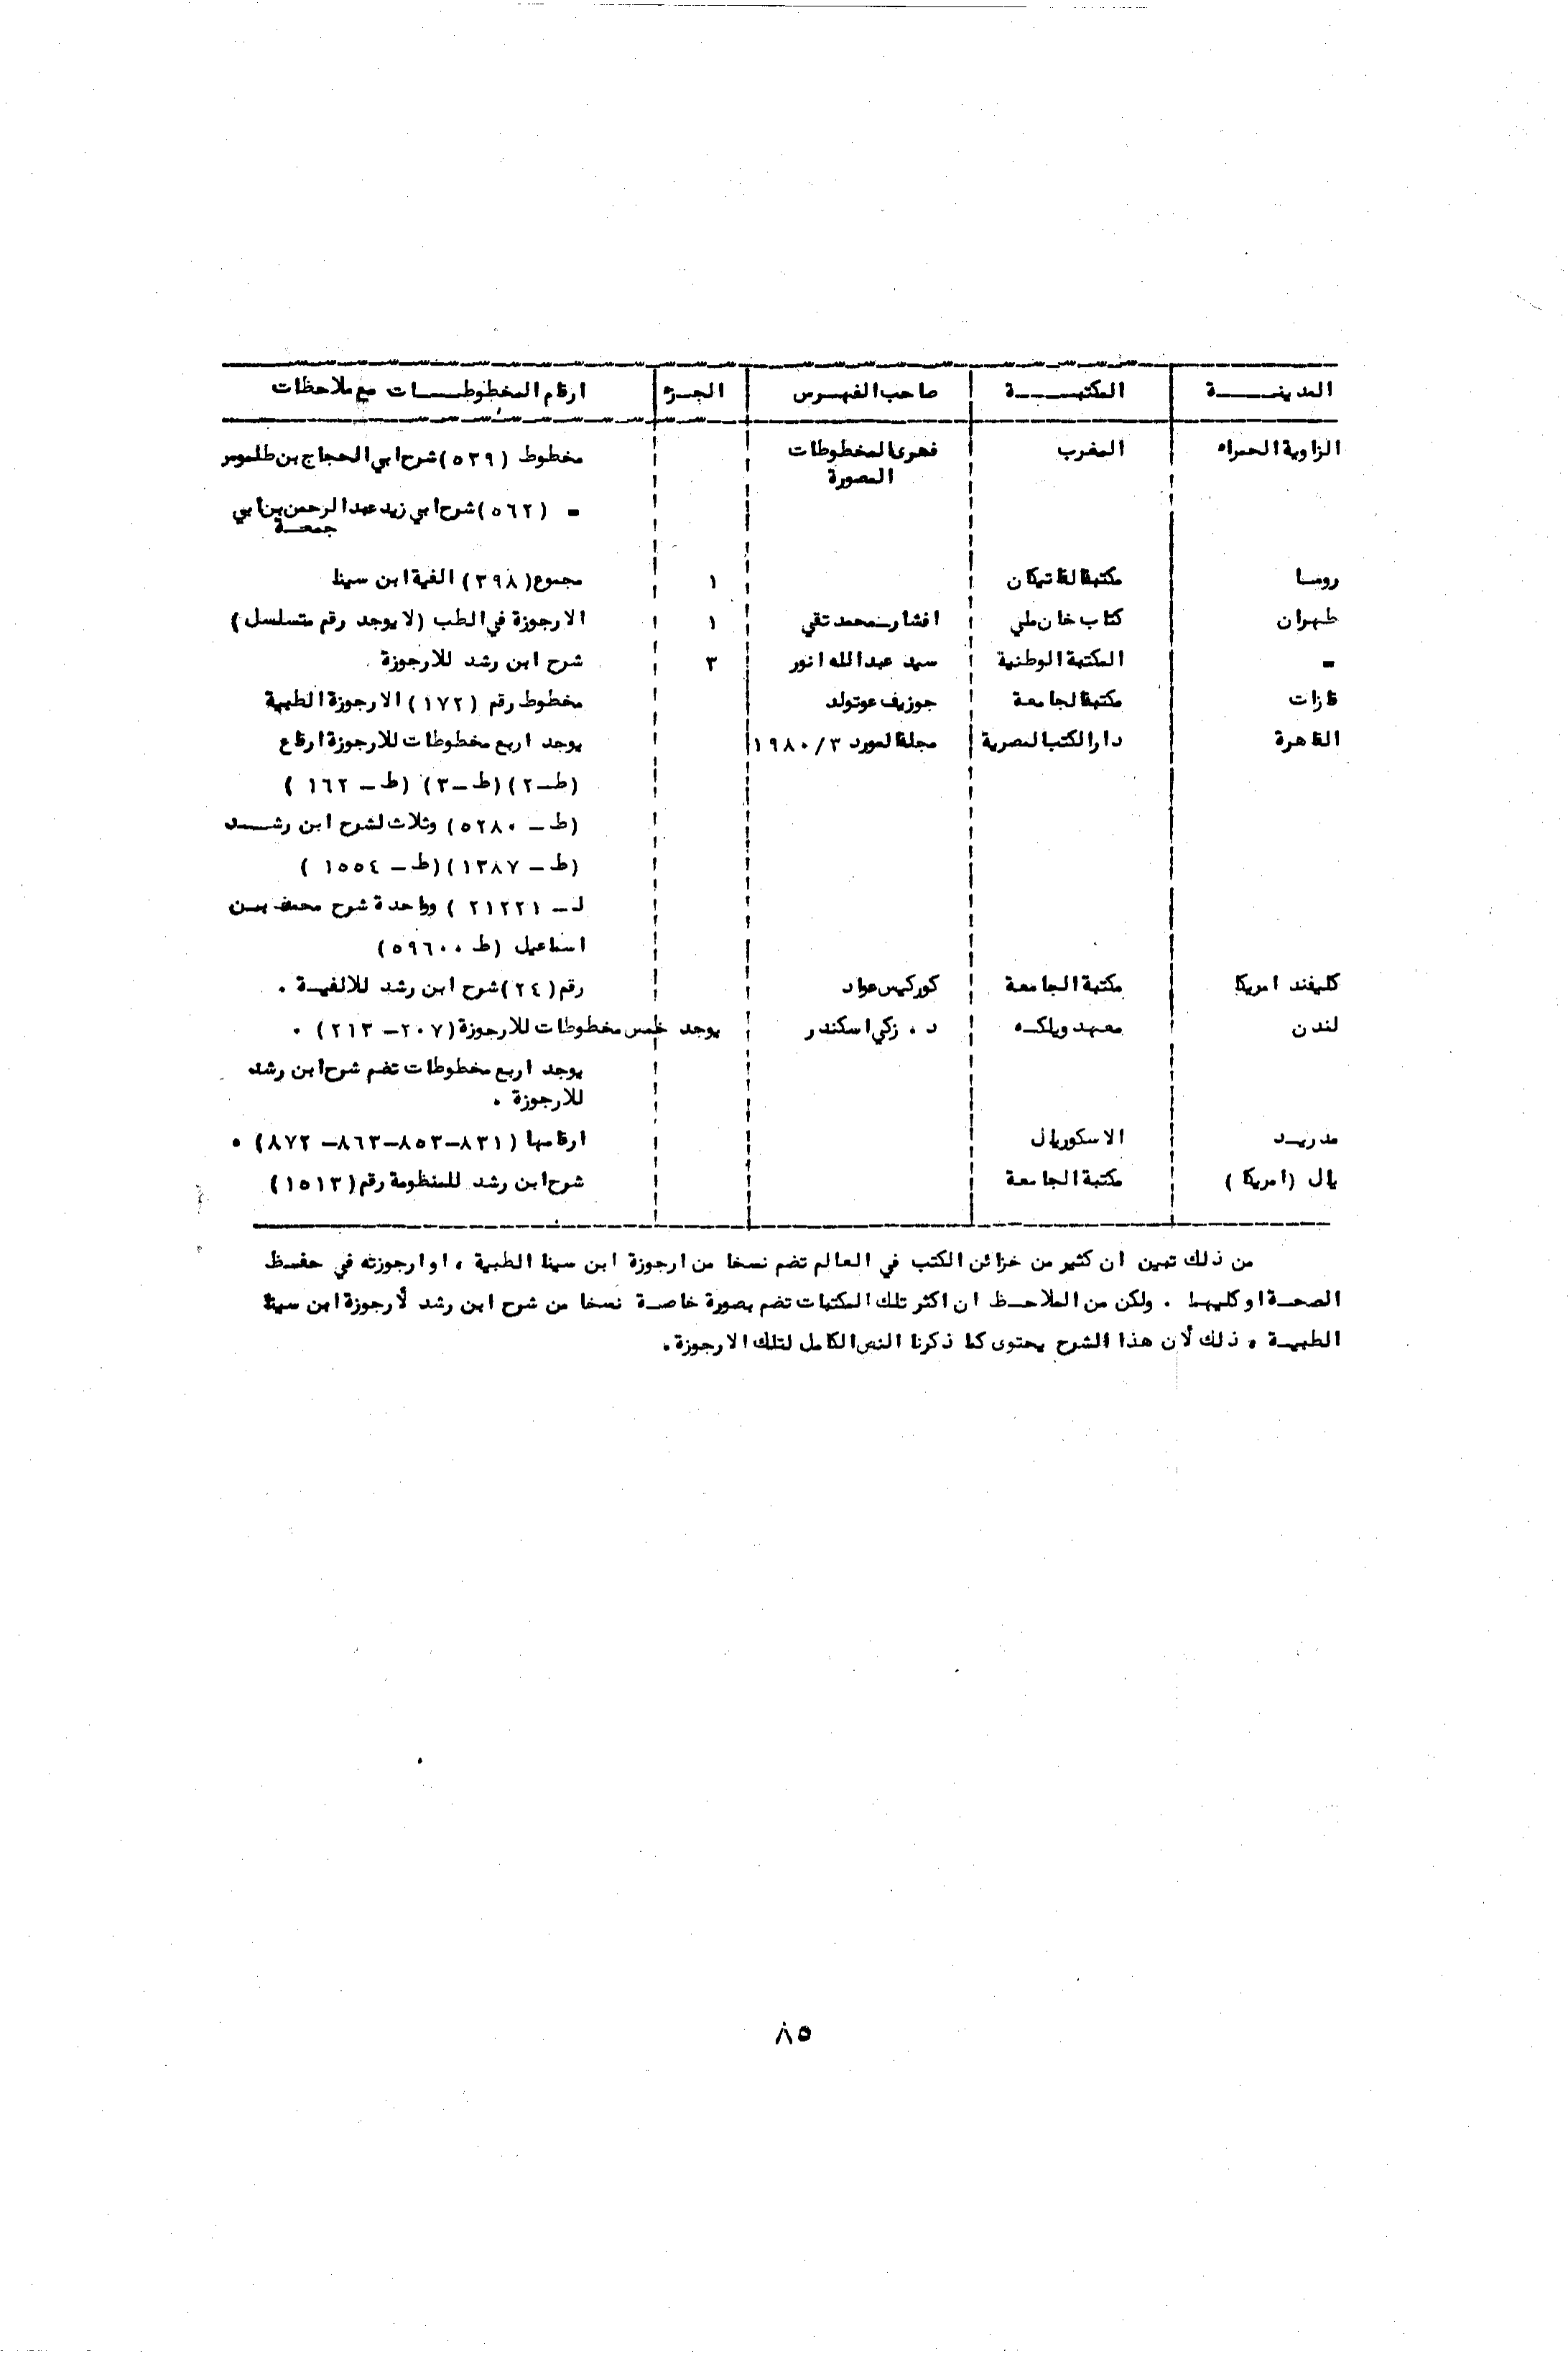 المدينة المكتبة صاحب الفهرس الجزء ارقام المخطوطات مع ملاحظات
الزاوية الحمراء المغرب فهرس المخطوطات مخطوط (٥٣٩) شرح ابي الحجاج بن طلموس
المصورة
= (٥٦٢) شرح ابي زيد عبد الرحمن بن ابي
جمعة
روما مكتبة الفاتيكان ١ مجموع (٣٩٨) الفية ابن سينا
طهران كتاب خان ملي افشار_محمد تقي ١ الارجوزة في الطب (لا يوجد رقم متسلسل)
= المكتبة الوطنية سيد عبد الله انور ٣ شرح ابن رشد للارجوزة
قازات مكتبة الجامعة جوزيف عوتولد مخطوط رقم (١٧٢) الارجوزة الطبية
القاهرة دار الكتب المصرية مجلة المورد ١٩٨٠/٣ يوجد اربع مخطوطات للارجوزة ارقاع
(ط–٢) (ط–٣) (ط – ١٦٢ )
(ط – ٥٢٨٠) وثلاث لشرح ابن رشد
(ط – ١٣٨٧) (ط – ١٥٥٤ )
ل – ٢١٢٢١ ) وواحدة شرح محمد بن
اسماعيل (ط ٥٩٦٠٠)
كليفند امريكا مكتبة الجامعة كوركيس عواد رقم (٢٤) شرح ابن رشد للالفية .
لندن معهد ويلكه د . زكي اسكندر يوجد خمس مخطوطات للارجوزة (٢٠٧ – ٢١٣) .
يوجد اربع مخطوطات تضم شرح ابن رشد
للارجوزة .
مدريد الاسكوريال ارقامها (٨٣١–٨٥٣–٨٦٣– ٨٧٢) .
يال (امريكا ) مكتبة الجامعة شرح ابن رشد للمنظومة رقم (١٥١٣)
من ذلك تبين ان كثير من خزائن الكتب في العالم تضم نسخا من ارجوزة ابن سينا الطبية ، او ارجوزته في حفظ
الصحة او كليهما . ولكن من الملاحظ ان اكثر تلك المكتبات تضم بصورة خاصة نسخا من شرح ابن رشد لأرجوزة ابن سينا
الطبية ، ذلك لأن هذا الشرح يحتوى كما ذكرنا النص الكامل لتلك الارجوزة .
٨٥